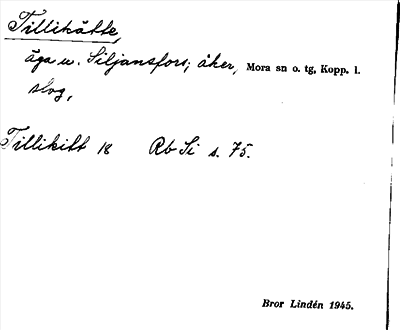 Tillikätte,
äga u. Siljansfors; åker, Mora sn o. tg, Kopp. l.
slog,
Tillikitt 18 Rb Si s. 75.
Bror Lindén 1945.